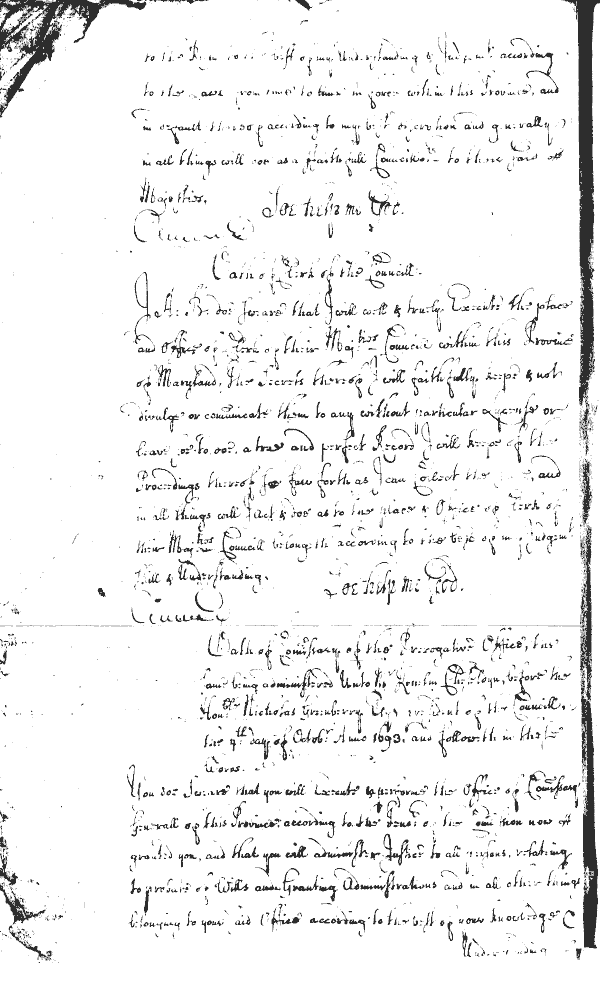 to the best of my Understanding & Judgmt according
to the Laws from time to time in force within this Province, and
in default thereof according to my best discretion and generally
in all things will doe as a faithfull Councillor to there said
Majesties. Soe help me God.
Oath of Clerk of the Councill.
I A: B: doe Sweare that I will well & truely Execute the place
and Office of Clerk of their Majties Councill within this Province
of Maryland, the Secrets thereof I will faithfully keepe & not
divulge or comunicate them to any without particular Lycense or
leave soe to doe, a true and perfect Record I will keepe of the
Proceedings thereof soe farr forth as I can Collect the , and
in all things will Act & doe as to the place & Office of Clerk of
their Majties Councill belongeth according to the best of my Judgemt
Skill & Understanding. Soe help me God.
Oath of Comissary of the Prerogative Office, the
same being administred Unto Mr Kenelm Cheseldyn, before the
Honble Nicholas Greenberry Esqr president of the Councill,
the 9th day of Octobr Anno 1693. and followeth in these
words.
You doe Sweare that you will Execute & performe the Office of Comissary
Generall of this Province according to the Tenor of the Comission now
granted you, and that you will administer Justice to all persons, relating
to probate of Wills and Granting Administrations and in all other things
belonging to your said Office according to the best of your knowledge &
Understanding